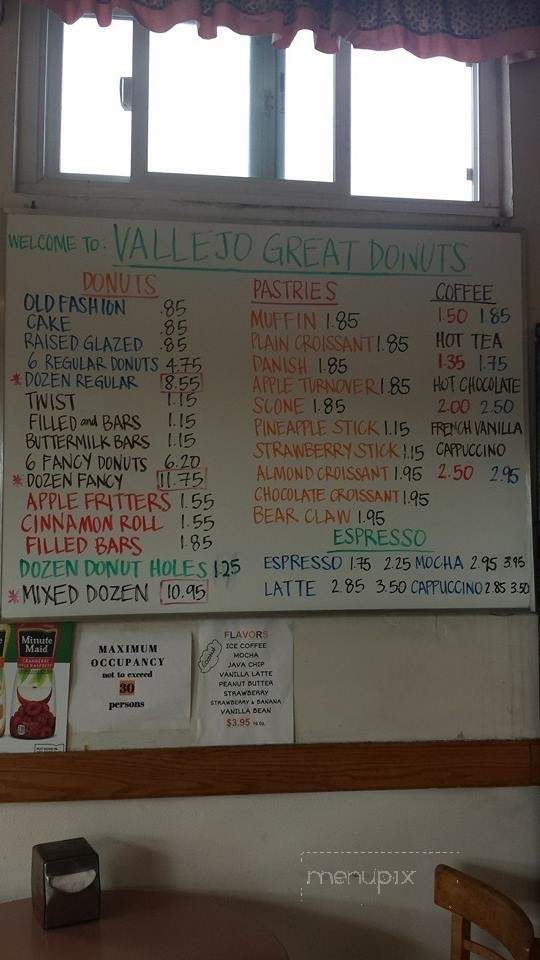 WELCOME TO: VALLEJO GREAT DONUTS
DONUTS
OLD FASHION .85
CAKE .85
RAISED GLAZED .85
6 REGULAR DONUTS 4.75
* DOZEN REGULAR 8.55
TWIST 1.15
FILLED and BARS 1.15
BUTTERMILK BARS 1.15
6 FANCY DONUTS 6.20
* DOZEN FANCY 11.75
APPLE FRITTERS 1.55
CINNAMON ROLL 1.55
FILLED BARS 1.85
DOZEN DONUT HOLES 1.25
* MIXED DOZEN 10.95
PASTRIES
MUFFIN 1.85
PLAIN CROISSANT 1.85
DANISH 1.85
APPLE TURNOVER 1.85
SCONE 1.85
PINEAPPLE STICK 1.15
STRAWBERRY STICK 1.15
ALMOND CROISSANT 1.95
CHOCOLATE CROISSANT 1.95
BEAR CLAW 1.95
COFFEE
1.50 1.85
HOT TEA
1.35 1.75
HOT CHOCOLATE
2.00 2.50
FRENCH VANILLA
CAPPUCCINO
2.50 2.95
ESPRESSO
ESPRESSO 1.75 2.25 MOCHA 2.95 3.95
LATTE 2.85 3.50 CAPPUCCINO 2.85 3.50
Minute
Maid
MAXIMUM
OCCUPANCY
not to exceed
30
persons
FLAVORS
Coconut
ICE COFFEE
MOCHA
JAVA CHIP
VANILLA LATTE
PEANUT BUTTER
STRAWBERRY
STRAWBERRY & BANANA
VANILLA BEAN
$3.95 16 oz.
menupix